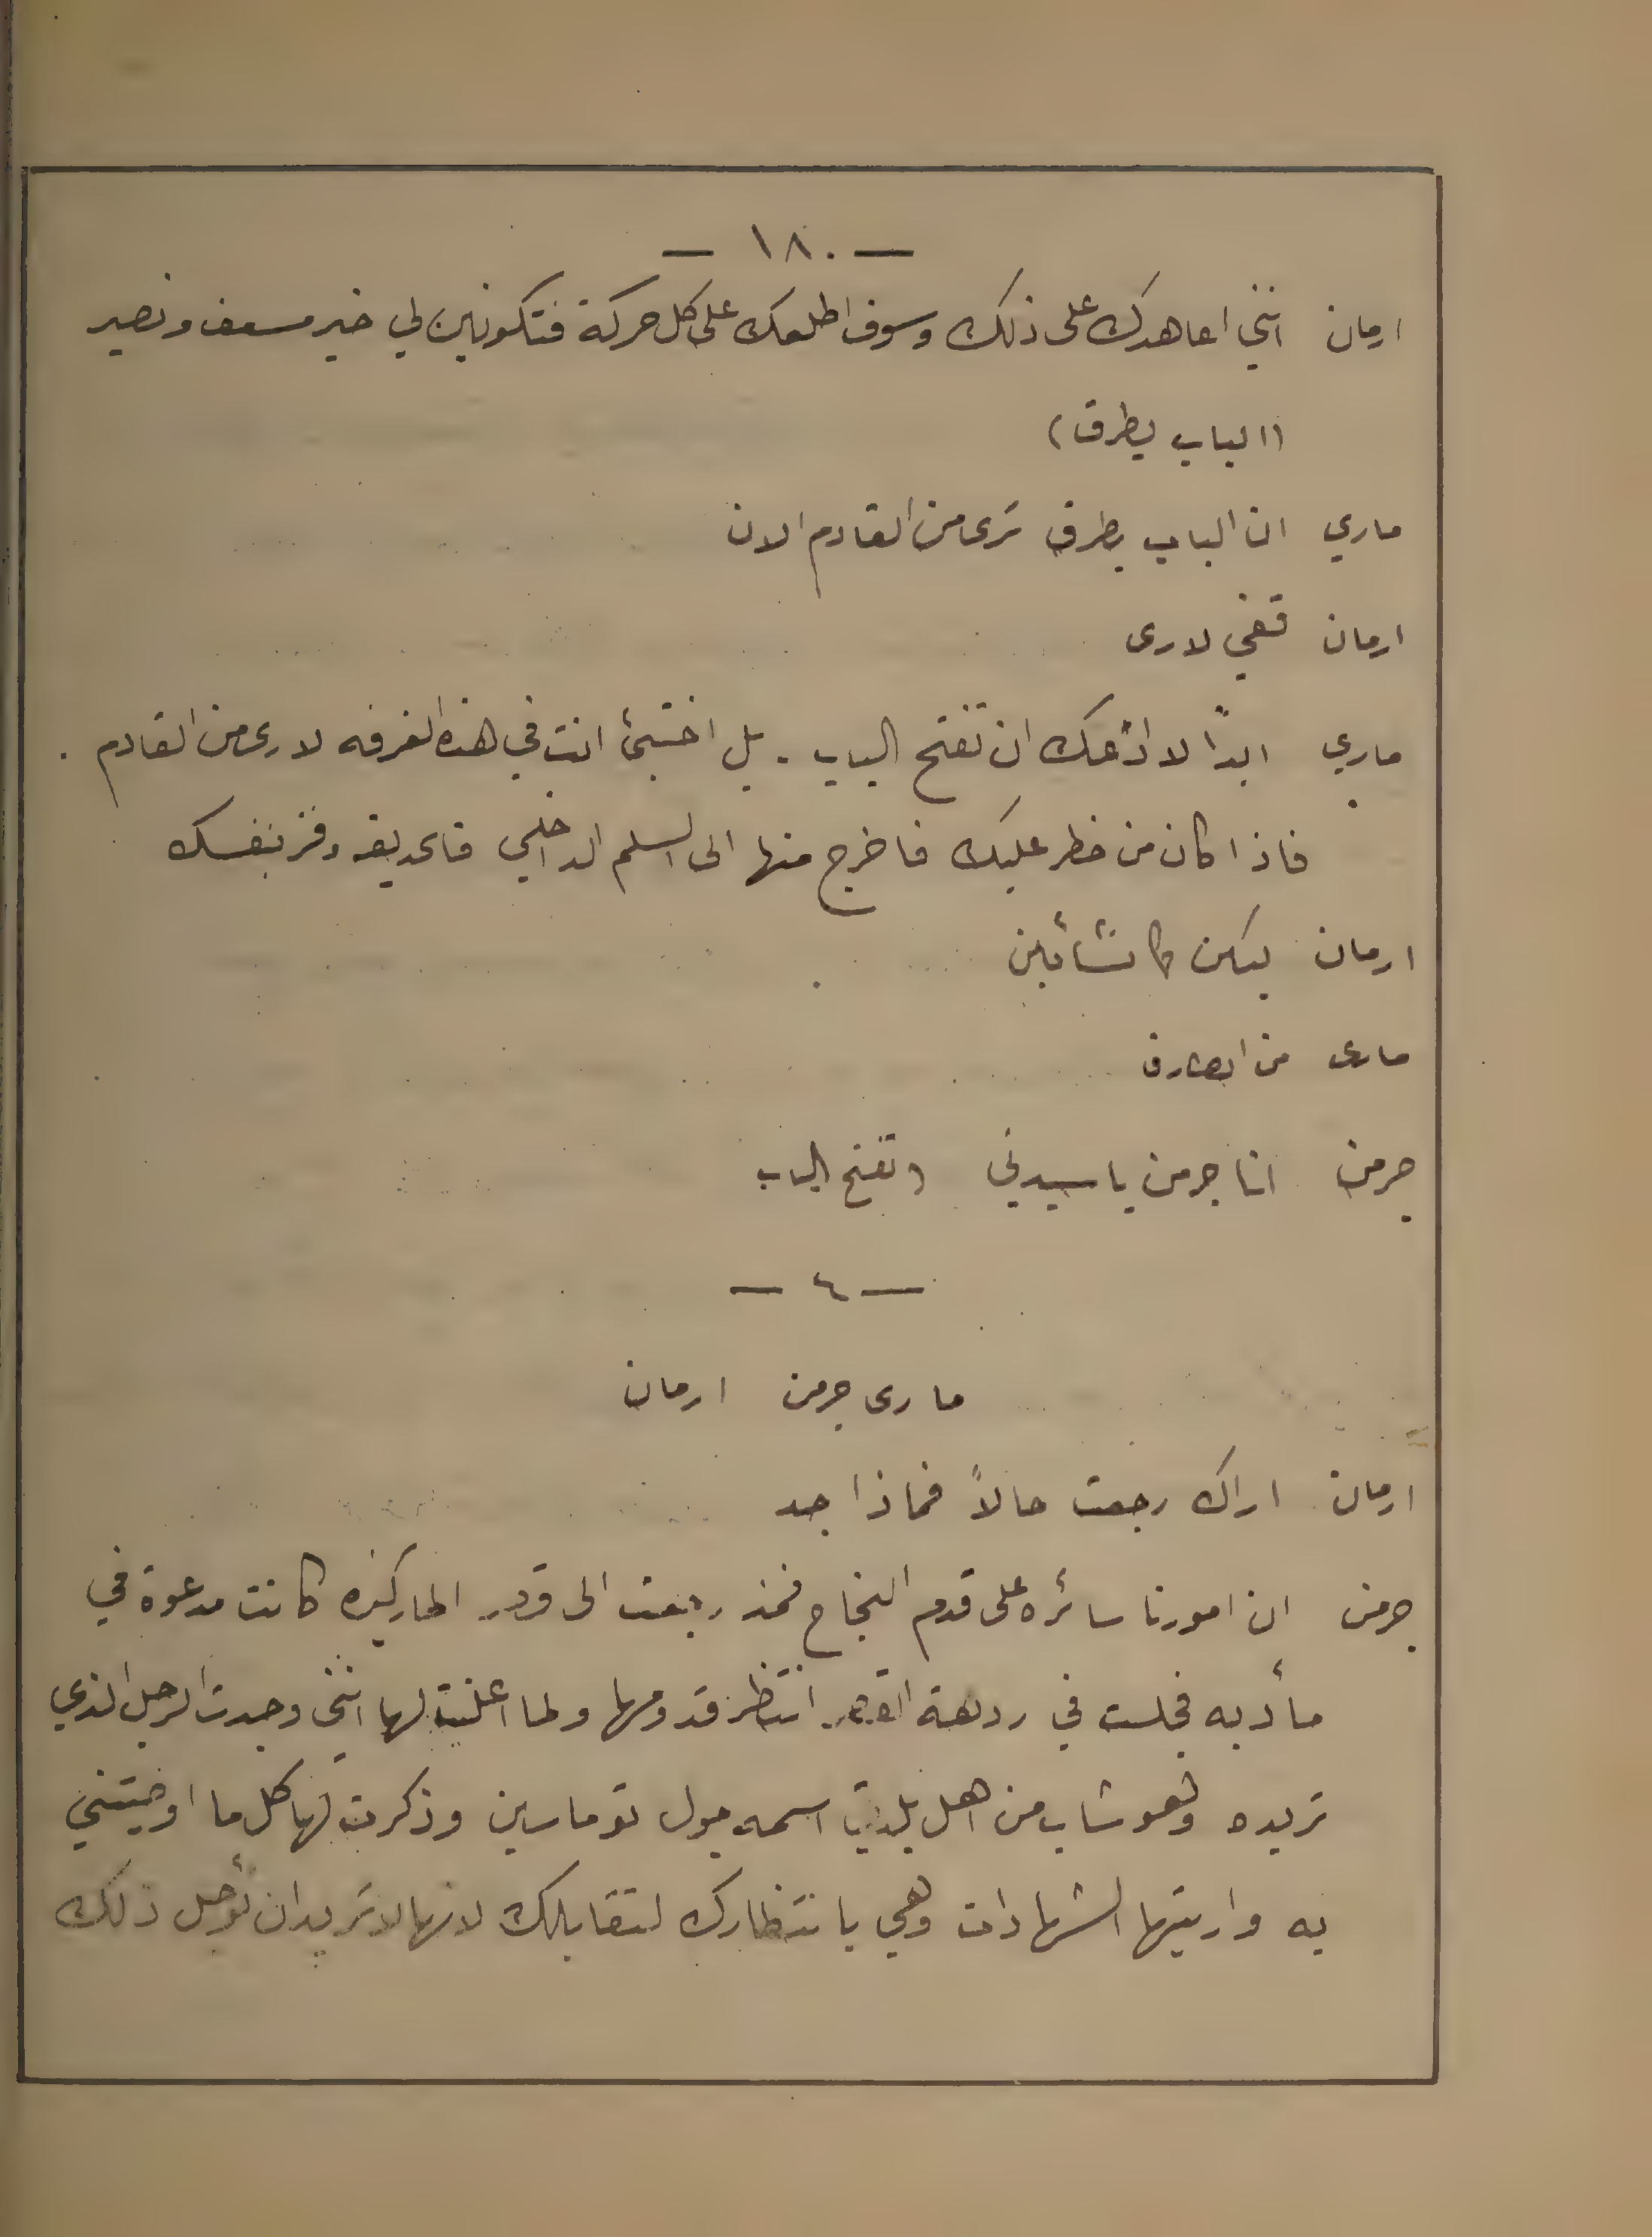 — ١٨٠ —
ارمان انني اعاهدك على ذلك وسوف اطلعك على كل حركة فتكونين لي خير مسعف ونصير
(الباب يطرق)
ماري ان الباب يطرق ترى من القادم الان
ارمان قفي لارى
ماري ابداً لا ادعك ان تفتح الباب . بل اختبئ انت في هذه الغرفه لارى من القادم .
فاذا كان من خطر عليك فاخرج منها الى السلم الداخلي فالحديقه وفز بنفسك
ارمان ليكن كما تشائين
مارى من الطارق
جرمن انا جرمن يا سيدتي (تفتح الباب
— ٤ —
مارى جرمن ارمان
ارمان اراك رجعت حالاً فماذا جد
جرمن ان امورنا سائره على قدم النجاح فمذ رجعت الى قصر الماركيزه كانت مدعوة في
مأدبه فجلست في ردهة القصر انتظر قدومها ولما اعلنت لها انني وجدت الرجل الذي
تريده وهو شاب من اهل بلدتي اسمه جول توماسين وذكرت لها كل ما اوصيتني
به واريتها الشهادات وهي بانتظارك لتقابلك لانها لا تريد ان تؤجل ذلك